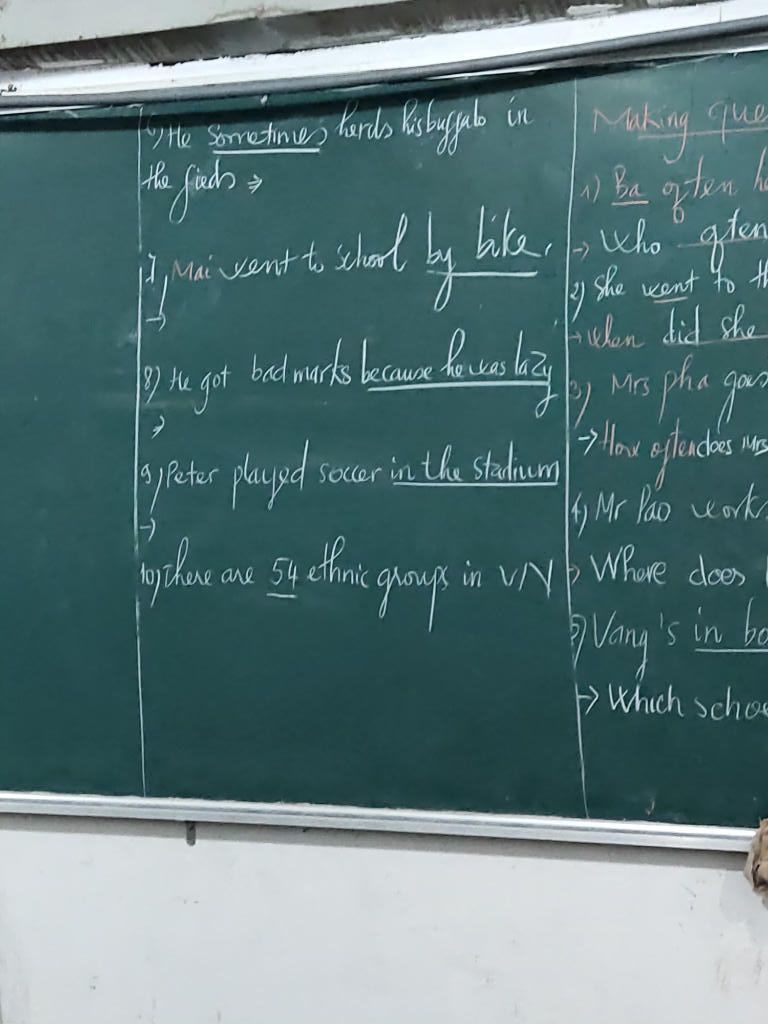 6) He sometimes herds his buffalo in
the fieds ⇒
7) Mai went to school by bike.
→
8) He got bad marks because he was lazy
→
9) Peter played soccer in the stadium
→
10) There are 54 ethnic groups in VN
Making que
1) Ba often h
→ Who often
2) She went to th
→ When did she
3) Mrs pha goes
→ How often does Mrs
4) Mr Pao work
→ Where does
5) Vang's in bo
→ Which schoo